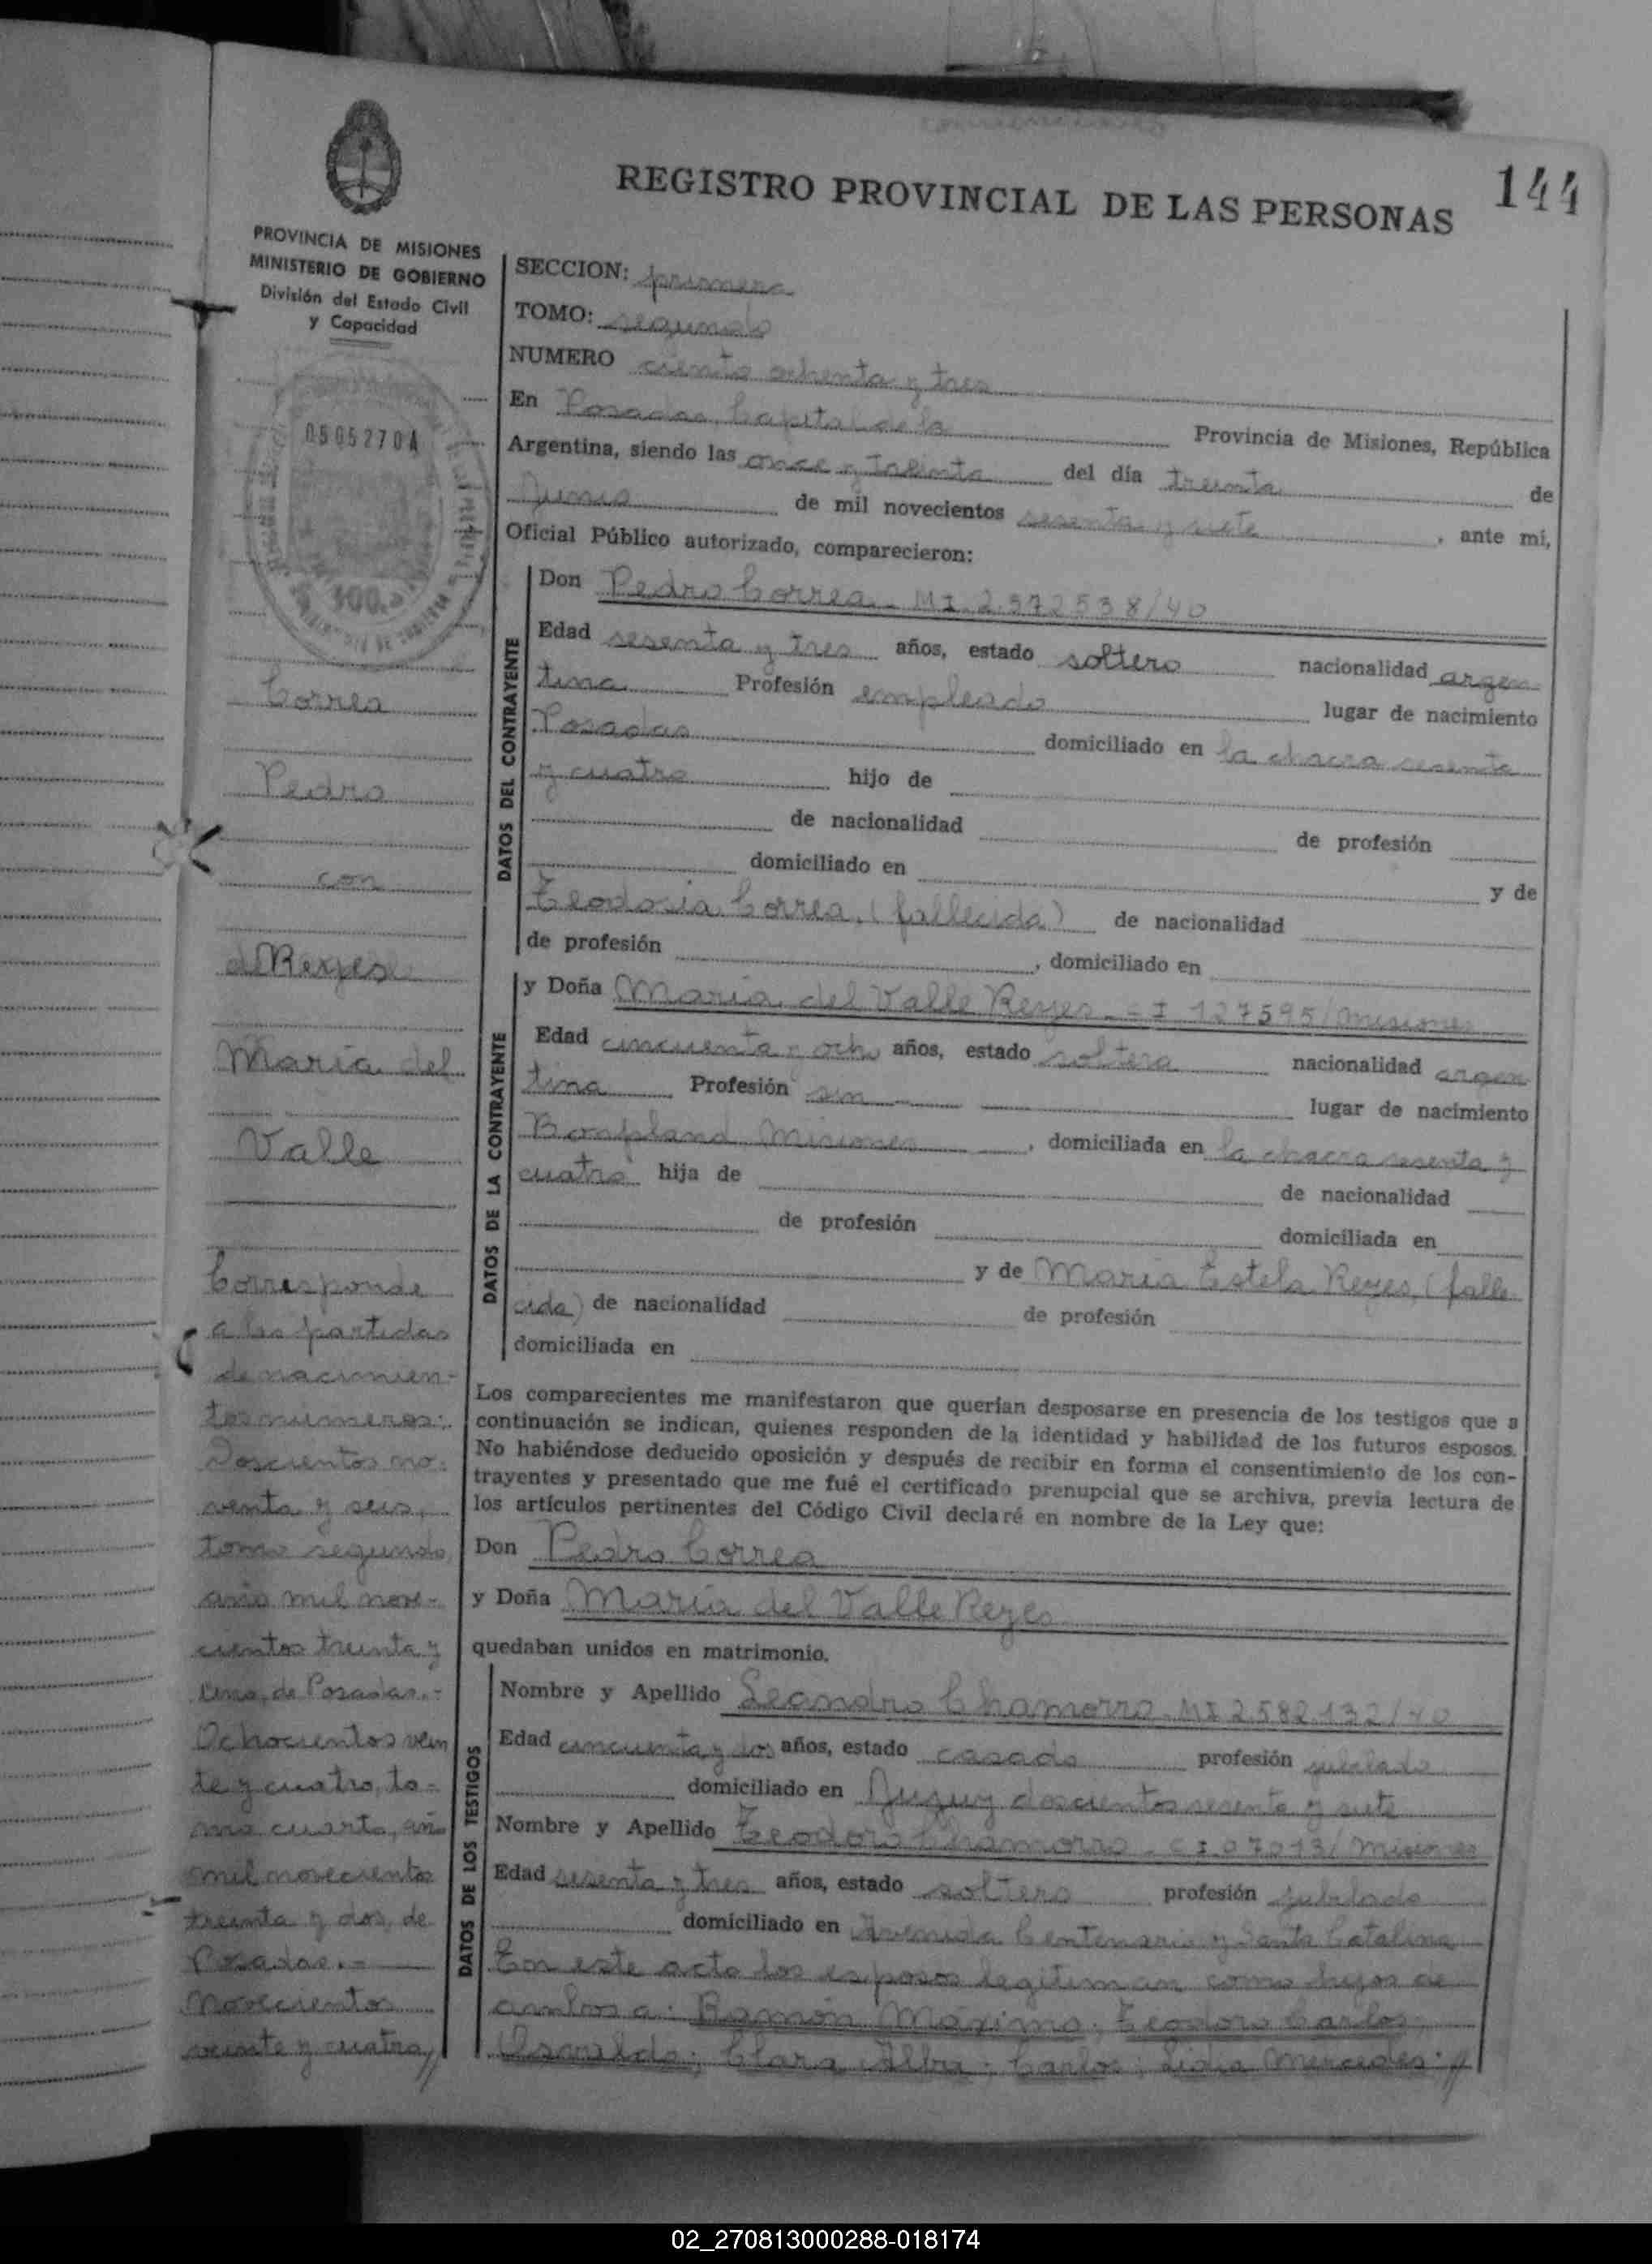 144
REGISTRO PROVINCIAL DE LAS PERSONAS
PROVINCIA DE MISIONES
MINISTERIO DE GOBIERNO
División del Estado Civil
y Capacidad
0505270A
Correa
Pedro
con
Reyes
María del
Valle
Corresponde
a las partidas
de nacimien-
tos números:
Doscientos no-
venta y seis,
tomo segundo,
año mil nove-
cientos treinta y
uno, de Posadas.-
Ochocientos vein
te y cuatro, to-
mo cuarto, año
mil novecientos
treinta y dos, de
Posadas.-
Novecientos
veinte y cuatro,//
SECCION: primera
TOMO: segundo
NUMERO ciento ochenta y tres
En Posadas Capital de la Provincia de Misiones, República
Argentina, siendo las once y treinta del día treinta de
Junio de mil novecientos sesenta y siete, ante mí,
Oficial Público autorizado, comparecieron:
DATOS DEL CONTRAYENTE
Don Pedro Correa - MI 2.572538/40
Edad sesenta y tres años, estado soltero nacionalidad argen
tina Profesión empleado lugar de nacimiento
Posadas domiciliado en la chacra sesenta
y cuatro hijo de
de nacionalidad de profesión
domiciliado en y de
Teodosia Correa, (fallecida) de nacionalidad
de profesión , domiciliado en
DATOS DE LA CONTRAYENTE
y Doña María del Valle Reyes - CI 127595/Misiones
Edad cincuenta y ocho años, estado soltera nacionalidad argen
tina Profesión sin lugar de nacimiento
Bonpland Misiones , domiciliada en la chacra sesenta y
cuatro hija de de nacionalidad
de profesión domiciliada en
y de María Estela Reyes, (falle
cida) de nacionalidad de profesión
domiciliada en
Los comparecientes me manifestaron que querían desposarse en presencia de los testigos que a
continuación se indican, quienes responden de la identidad y habilidad de los futuros esposos.
No habiéndose deducido oposición y después de recibir en forma el consentimiento de los con-
trayentes y presentado que me fué el certificado prenupcial que se archiva, previa lectura de
los artículos pertinentes del Código Civil declaré en nombre de la Ley que:
Don Pedro Correa
y Doña María del Valle Reyes
quedaban unidos en matrimonio.
DATOS DE LOS TESTIGOS
Nombre y Apellido Leandro Chamorro - MI 2.582.132/40
Edad cincuenta y dos años, estado casado profesión jubilado
domiciliado en Jujuy doscientos sesenta y siete
Nombre y Apellido Teodoro Chamorro - CI 07013/Misiones
Edad sesenta y tres años, estado soltero profesión jubilado
domiciliado en Avenida Centenario y Santa Catalina
En este acto los esposos legitiman como hijos de
ambos a: Ramón Máximo; Teodoro Carlos;
Osvaldo; Clara Alba; Carlos; Lidia Mercedes;//
02_270813000288-018174